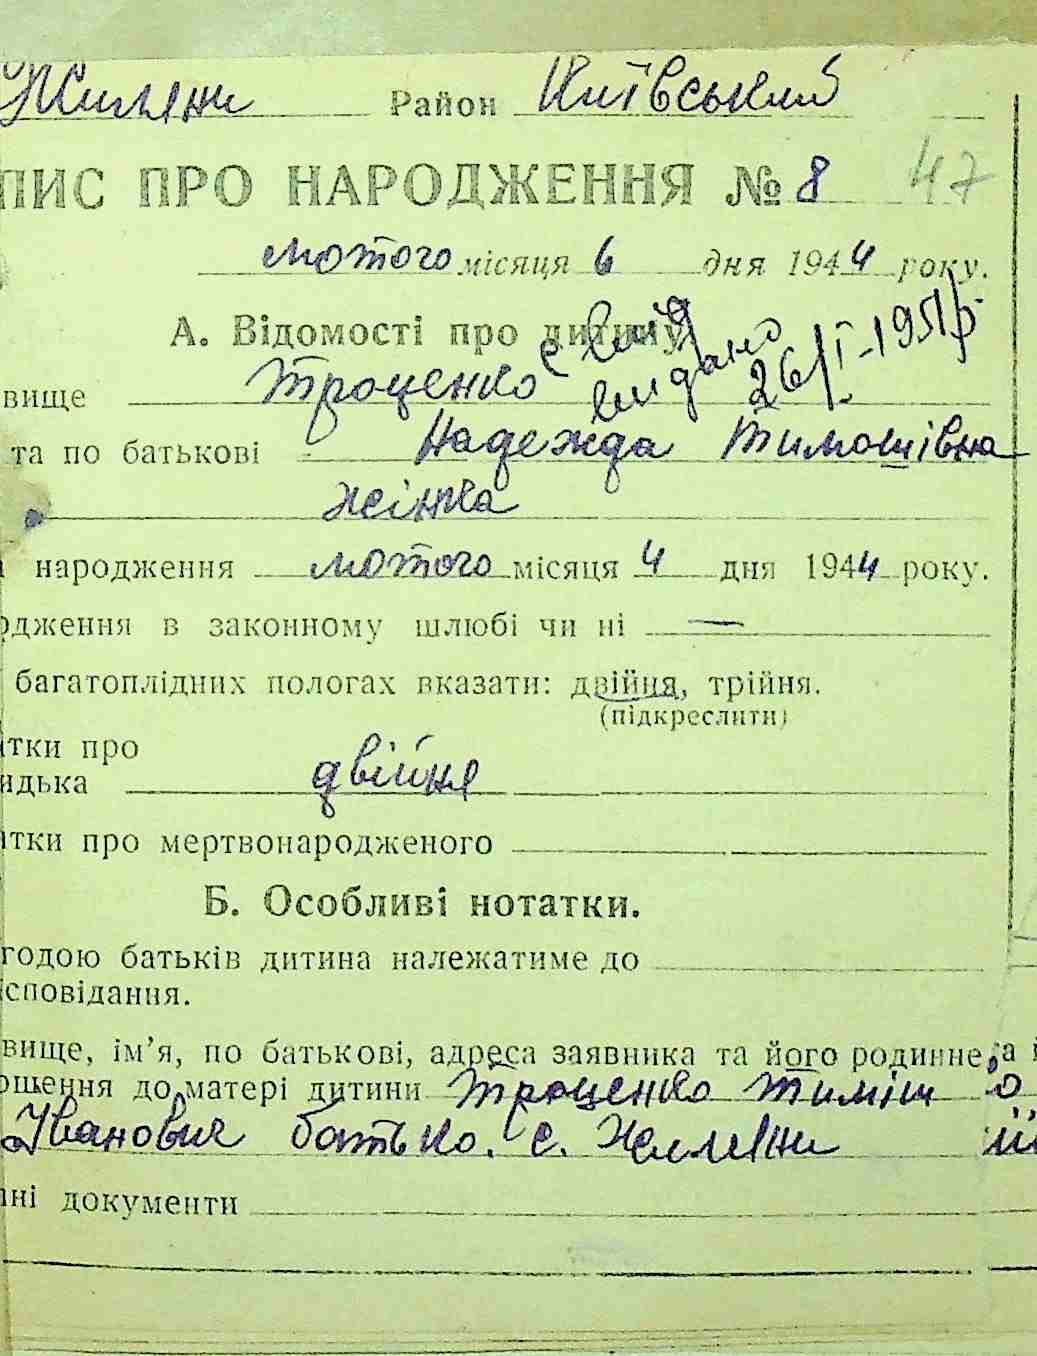 Жиляни Район Київський
ПИС ПРО НАРОДЖЕННЯ № 8 47
лютого місяця 6 дня 1944 року.
А. Відомості про дитину
вище Троценко видано 26/I-1951р.
та по батькові Надежда Тимошівна
жінка
народження лютого місяця 4 дня 1944 року.
одження в законному шлюбі чи ні —
багатоплідних пологах вказати: двійня, трійня.
(підкреслити)
тки про
идька двійня
тки про мертвонародженого
Б. Особливі нотатки.
годою батьків дитина належатиме до
сповідання.
вище, ім’я, по батькові, адреса заявника та його родинне
ошення до матері дитини Троценко Тиміш
Іванович батько. с. Жиляни
ні документи